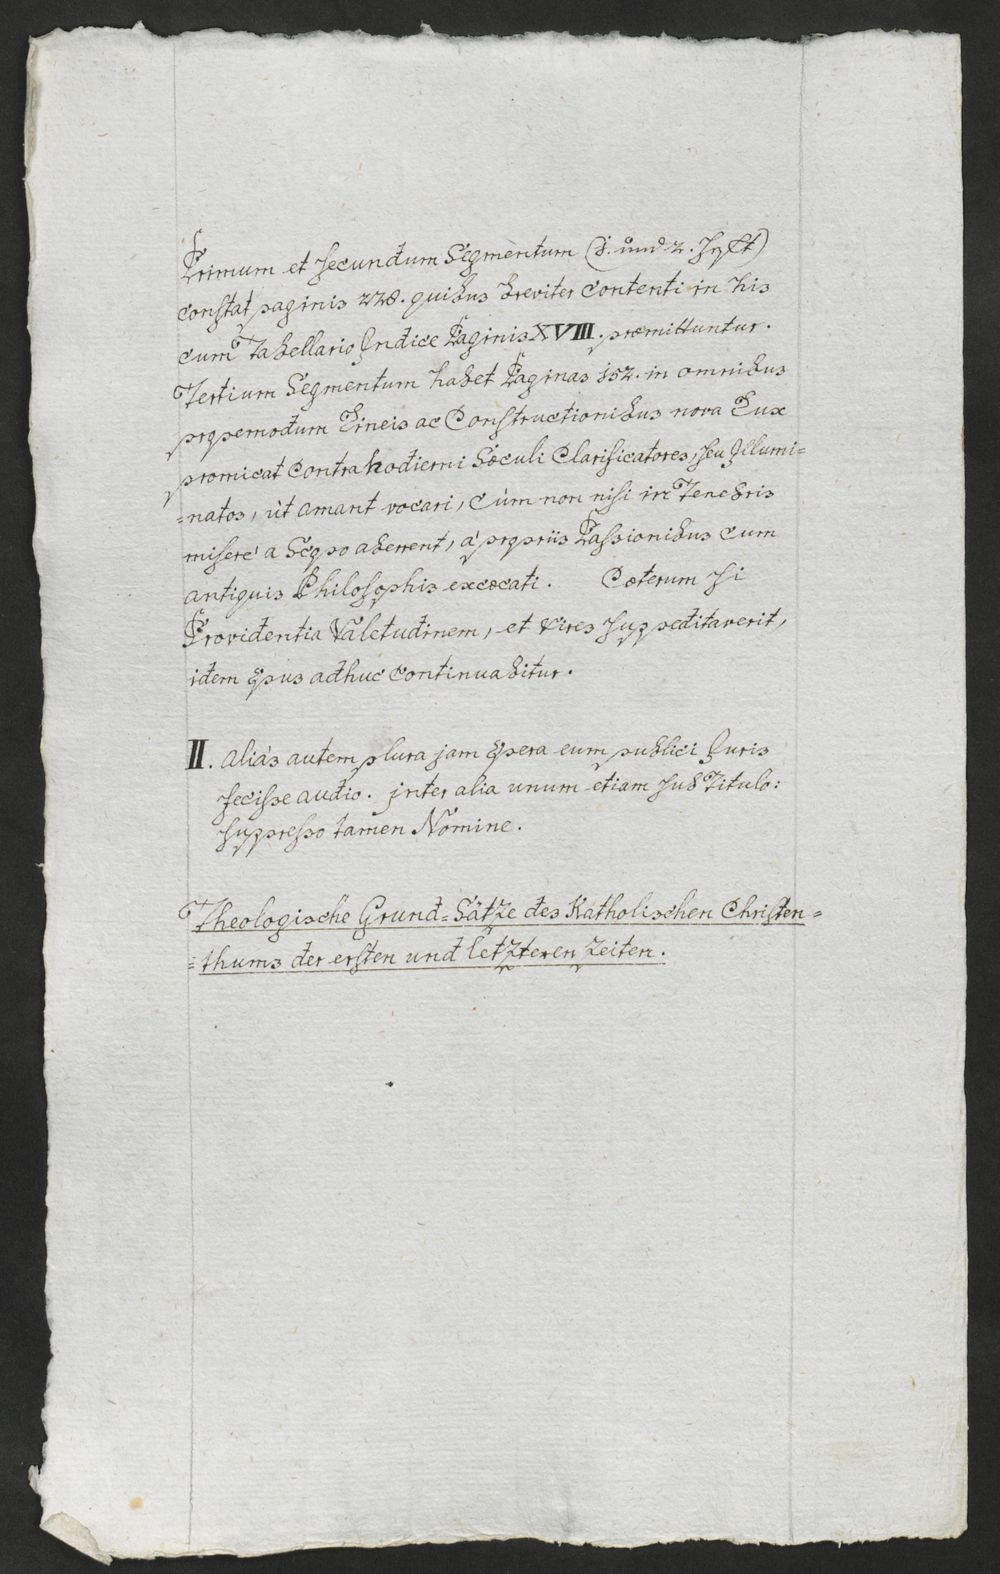 Primum et secundum Segmentum (1. und 2. Heft)
constat paginis 228. quibus breviter contenti in his
cum Tabellario Indice Paginis XVIII. præmittuntur.
Tertium Segmentum habet Paginas 152. in omnibus
propemodum Lineis ac Constructionibus nova Lux
promicat contra hodierni Sæculi Clarificatores, seu Illumi=
=natos, ùt amant vocari, cùm non nisi in Tenebris
miserè a Scopo aberrent, à propriis Passionibus cum
antiquis Philosophis excœcati. Cæterum si
Providentia Valetudinem, et vires suppeditaverit,
idem Opus adhuc continuabitur.
II. Aliàs autem plura jam Opera eum publici Juris
fecisse audio. inter alia unum etiam sub Titulo:
suppresso tamen Nomine.
Theologische Grund=Sätze des Katholischen Christen=
=thums der ersten und letzteren Zeiten.